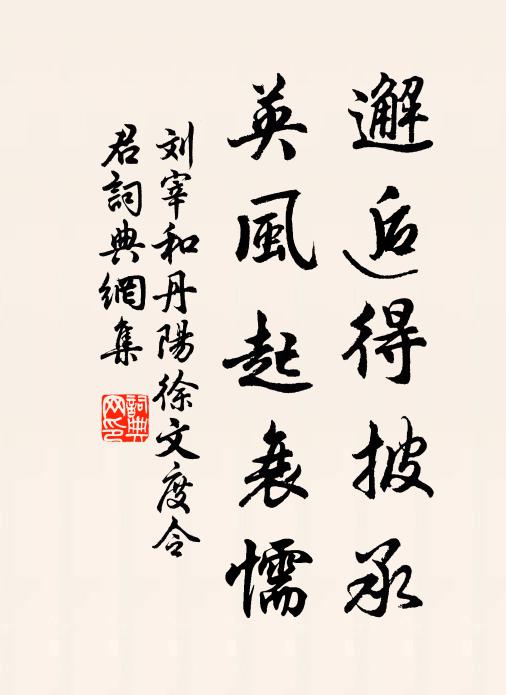 邂逅得披承
英風起衰懦
刘宰和丹陽徐文度令
君詞典網集
詞典
网印